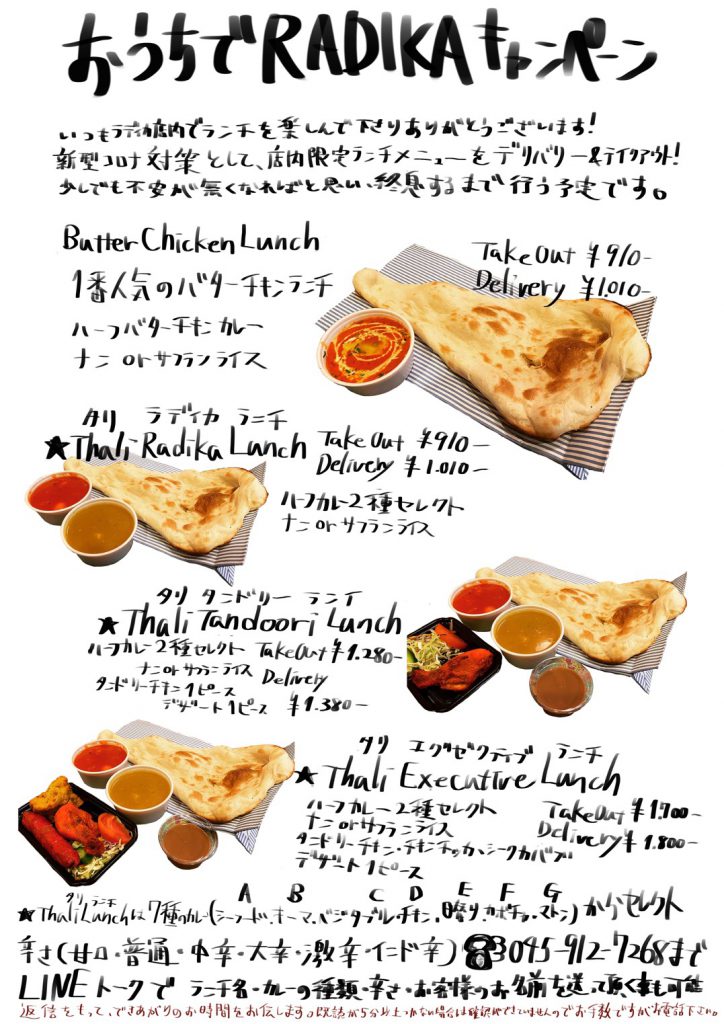 おうちでRADIKAキャンペーン
いつもラディカ店内でランチを楽しんで下さりありがとうございます!
新型コロナ対策として、店内限定ランチメニューをデリバリー&テイクアウト!
少しでも不安が無くなればと思い、終息するまで行う予定です。
Butter Chicken Lunch
Take Out ¥910-
Delivery ¥1.010-
1番人気のバターチキンランチ
ハーフバターチキンカレー
ナン orサフランライス
タリ ラディカ ランチ
★Thali Radika Lunch
Take Out ¥910-
Delivery ¥1.010-
ハーフカレー2種セレクト
ナンorサフランライス
タリ タンドリー ランイ
★Thali Tandoori Lunch
ハーフカレー2種セレクト Take Out ¥1.280-
ナンorサフランライス Delivery
タンドリーチキン1ピース
デザート1ピース ¥1.380-
タリ エグゼクティブ ランチ
★Thali Executive Lunch
ハーフカレー2種セレクト Take Out ¥1.700-
ナンorサフランライス Delivery ¥1.800-
タンドリーチキン・チキンチッカ・シークカバブ
デザート1ピース
A B C D E F G
タリ ランチ
★Thali Lunchは7種のカレー(シーフード.キーマ.ベジタブル.チキン.日替り.カボチャ.マトン)からセレクト
辛さ(甘口・普通・中辛・大辛・激辛・インド辛) ☎045-912-7268まで
LINEトークで ランチ名・カレーの種類・辛さ・お客様のお名前を送って頂く事も可能
返信をもって、できあがりのお時間をお伝えします。既読が5分以上つかない場合は確認ができていませんのでお手数ですがお電話下さい。